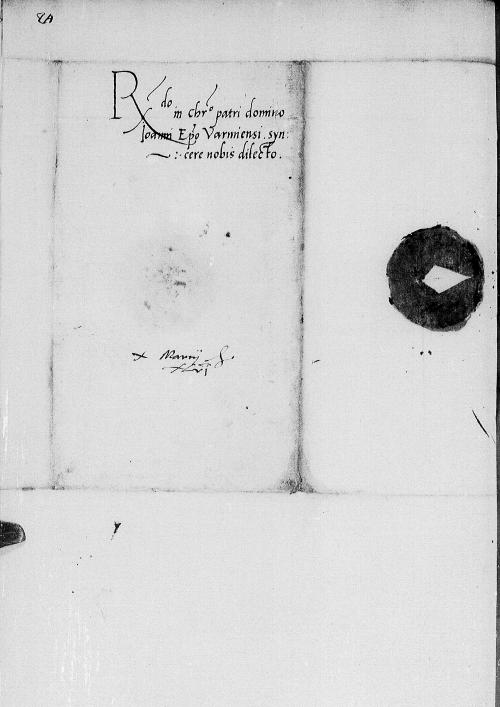 84
R.do in Chr.o patri domino
Ioanni Epo Varmiensi. syn:
:. cere nobis dilecto.
x Martij
xlvi